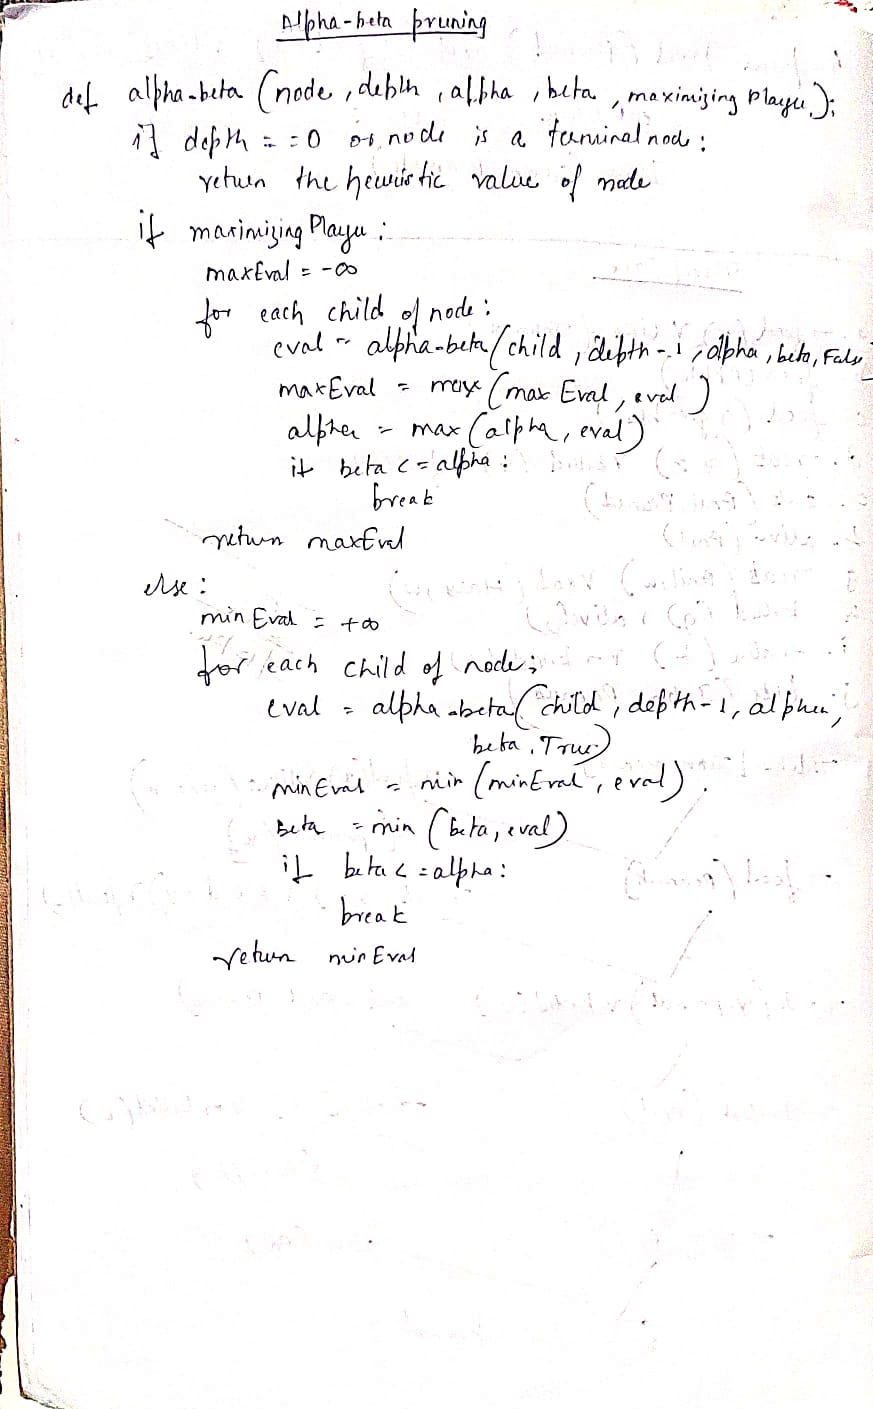 Alpha-beta pruning
def alpha-beta (node, depth, alpha, beta, maximizing Player):
if depth == 0 or node is a terminal node:
return the heuristic value of node
if maximizing Player:
maxEval = -∞
for each child of node:
eval = alpha-beta (child, depth-1, alpha, beta, False
maxEval = max (max Eval, eval)
alpha = max (alpha, eval)
if beta <= alpha:
break
return maxEval
else:
min Eval = +∞
for each child of node:
eval = alpha-beta (child, depth-1, alpha,
beta, True)
minEval = min (minEval, eval).
Beta = min (beta, eval)
if beta <= alpha:
break
return min Eval